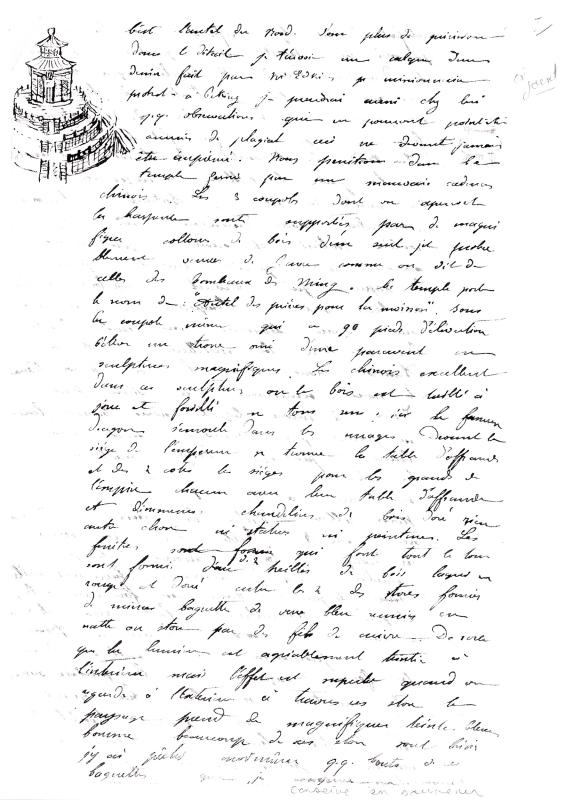 c'est l'autel du Nord. Pour plus de précision
dans le détail je un calque d'un
dessin fait par Mr
protest. à Peking je prendrai aussi chez lui
q.q. observations qui ne pourront
de plagiat ceci ne devant jamais
être imprimé. Nous pénétrons dans le
temple par un mauvais cadenas
chinois. Les 3 coupoles dont on aperçoit
la charpente sont supportées par de magni
fiques colonnes de bois d'une seul jet proba
blement venues de comme on dit de
celles des tombeaux des Ming. Ce temple porte
le nom de : "Autel des prières pour la moisson". Sous
la coupole qui a 90 pieds d'élévation
s'élève un trone orné d'une paravent en
sculptures magnifiques. Les chinois excellent
dans ces sculptures où le bois est taillé à
jour et fouillé en tous sens ; c'est le fameux
dragon dans les nuages. Devant le
siège de l'empereur se trouve la table d'offrandes
et des 2 cotés les sièges pour les grands de
l'empire chacun avec leur table d'offrandes
et d'immenses chandeliers de bois doré rien
autre chose ni statues ni peintures. Les
fenêtres qui font tout le tour
sont formées d'un treillis de bois laqué en
rouge et doré entre les 2 des stores formés
de minces baguettes de verre bleu réunies en
natte ou store par des fils de cuivre. De sorte
que la lumière est agréablement teintée à
l'intérieur mais l'effet est superbe quand on
regarde à l'extérieur à travers ces stores le
paysage prend de magnifiques teintes bleues
comme beaucoup de ces stores sont
j'y ai q.q. bouts de ces
baguettes que je
conserve en souvenir